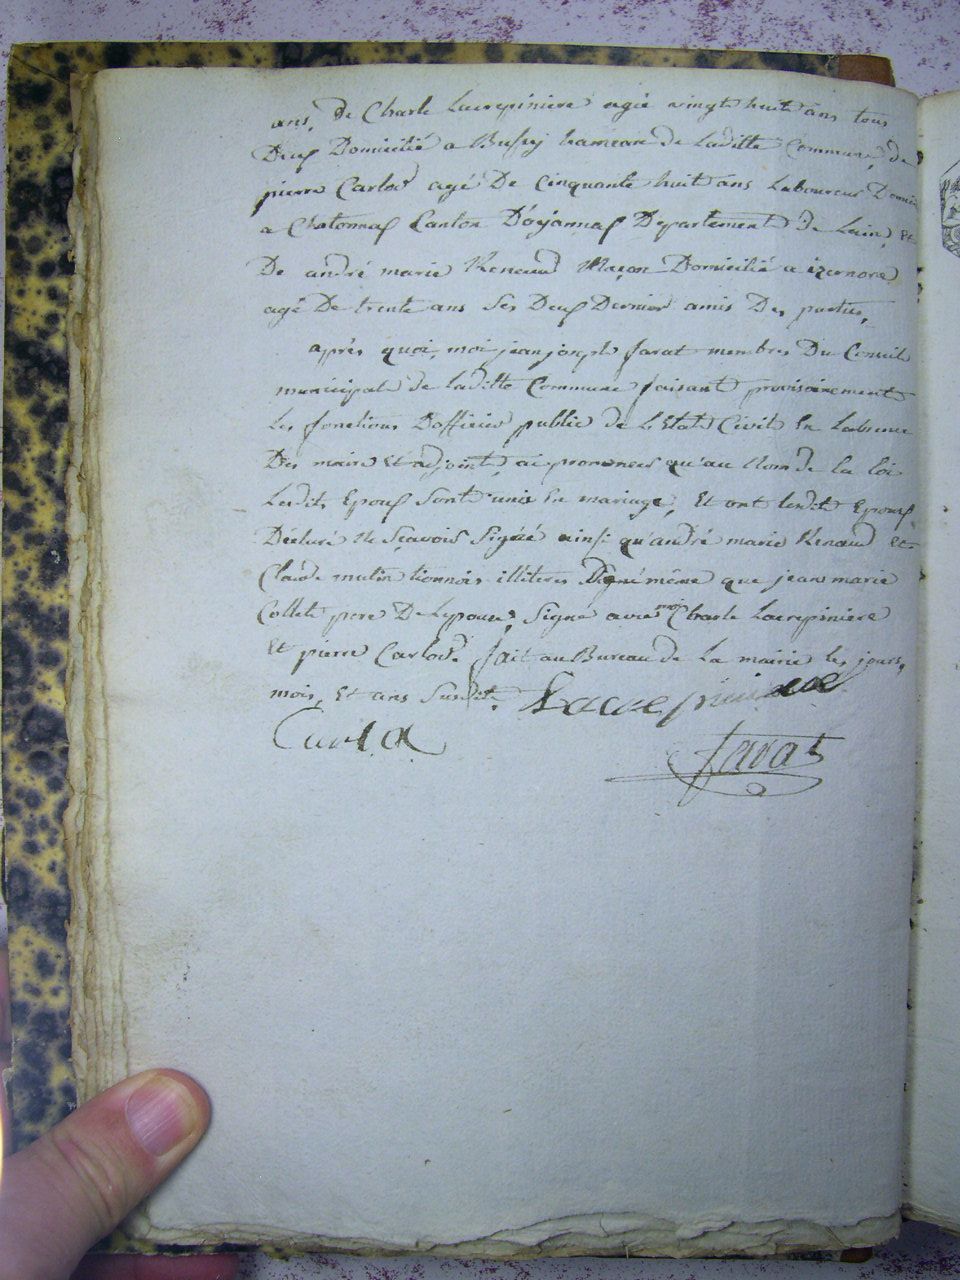 ans, de Charle Lacrepiniere agé vingt huit ans tous
Deux Domicilié a Bussy hameau de Laditte Commune, de
pierre Carlod agé De Cinquante huit ans Laboureur Domici
a Chatonnas Canton D'oyonnas Departement de Lain, et
De andré marie Renaud Maçon Domicilié a izernore
agé De trente ans Ses Deux Dernier amis Des parties,
après quoi, moi jean joseph Javat membres Du Conseil
municipal de laditte Commune faisant provisoirement
Les fonctions D'officier public de L'Etat Civil En Labsence
Des maire et adjoint, ai prononcé qu'au Nom de la loi
Lesdits Epoux Sont unis En mariage, Et ont lesdit Epoux
Déclaré Ne Sçavoir Signé ainsi qu'andré marie Renaud et
Claude mulin illiteres même que jean marie
Collet pere De Lepouse, Signé avec moi Charle Lacrepiniere
et pierre Carlod. fait au Bureau de La mairie les jours,
mois, Et ans Susdit. Lacrepiniere
Carlod
Javat